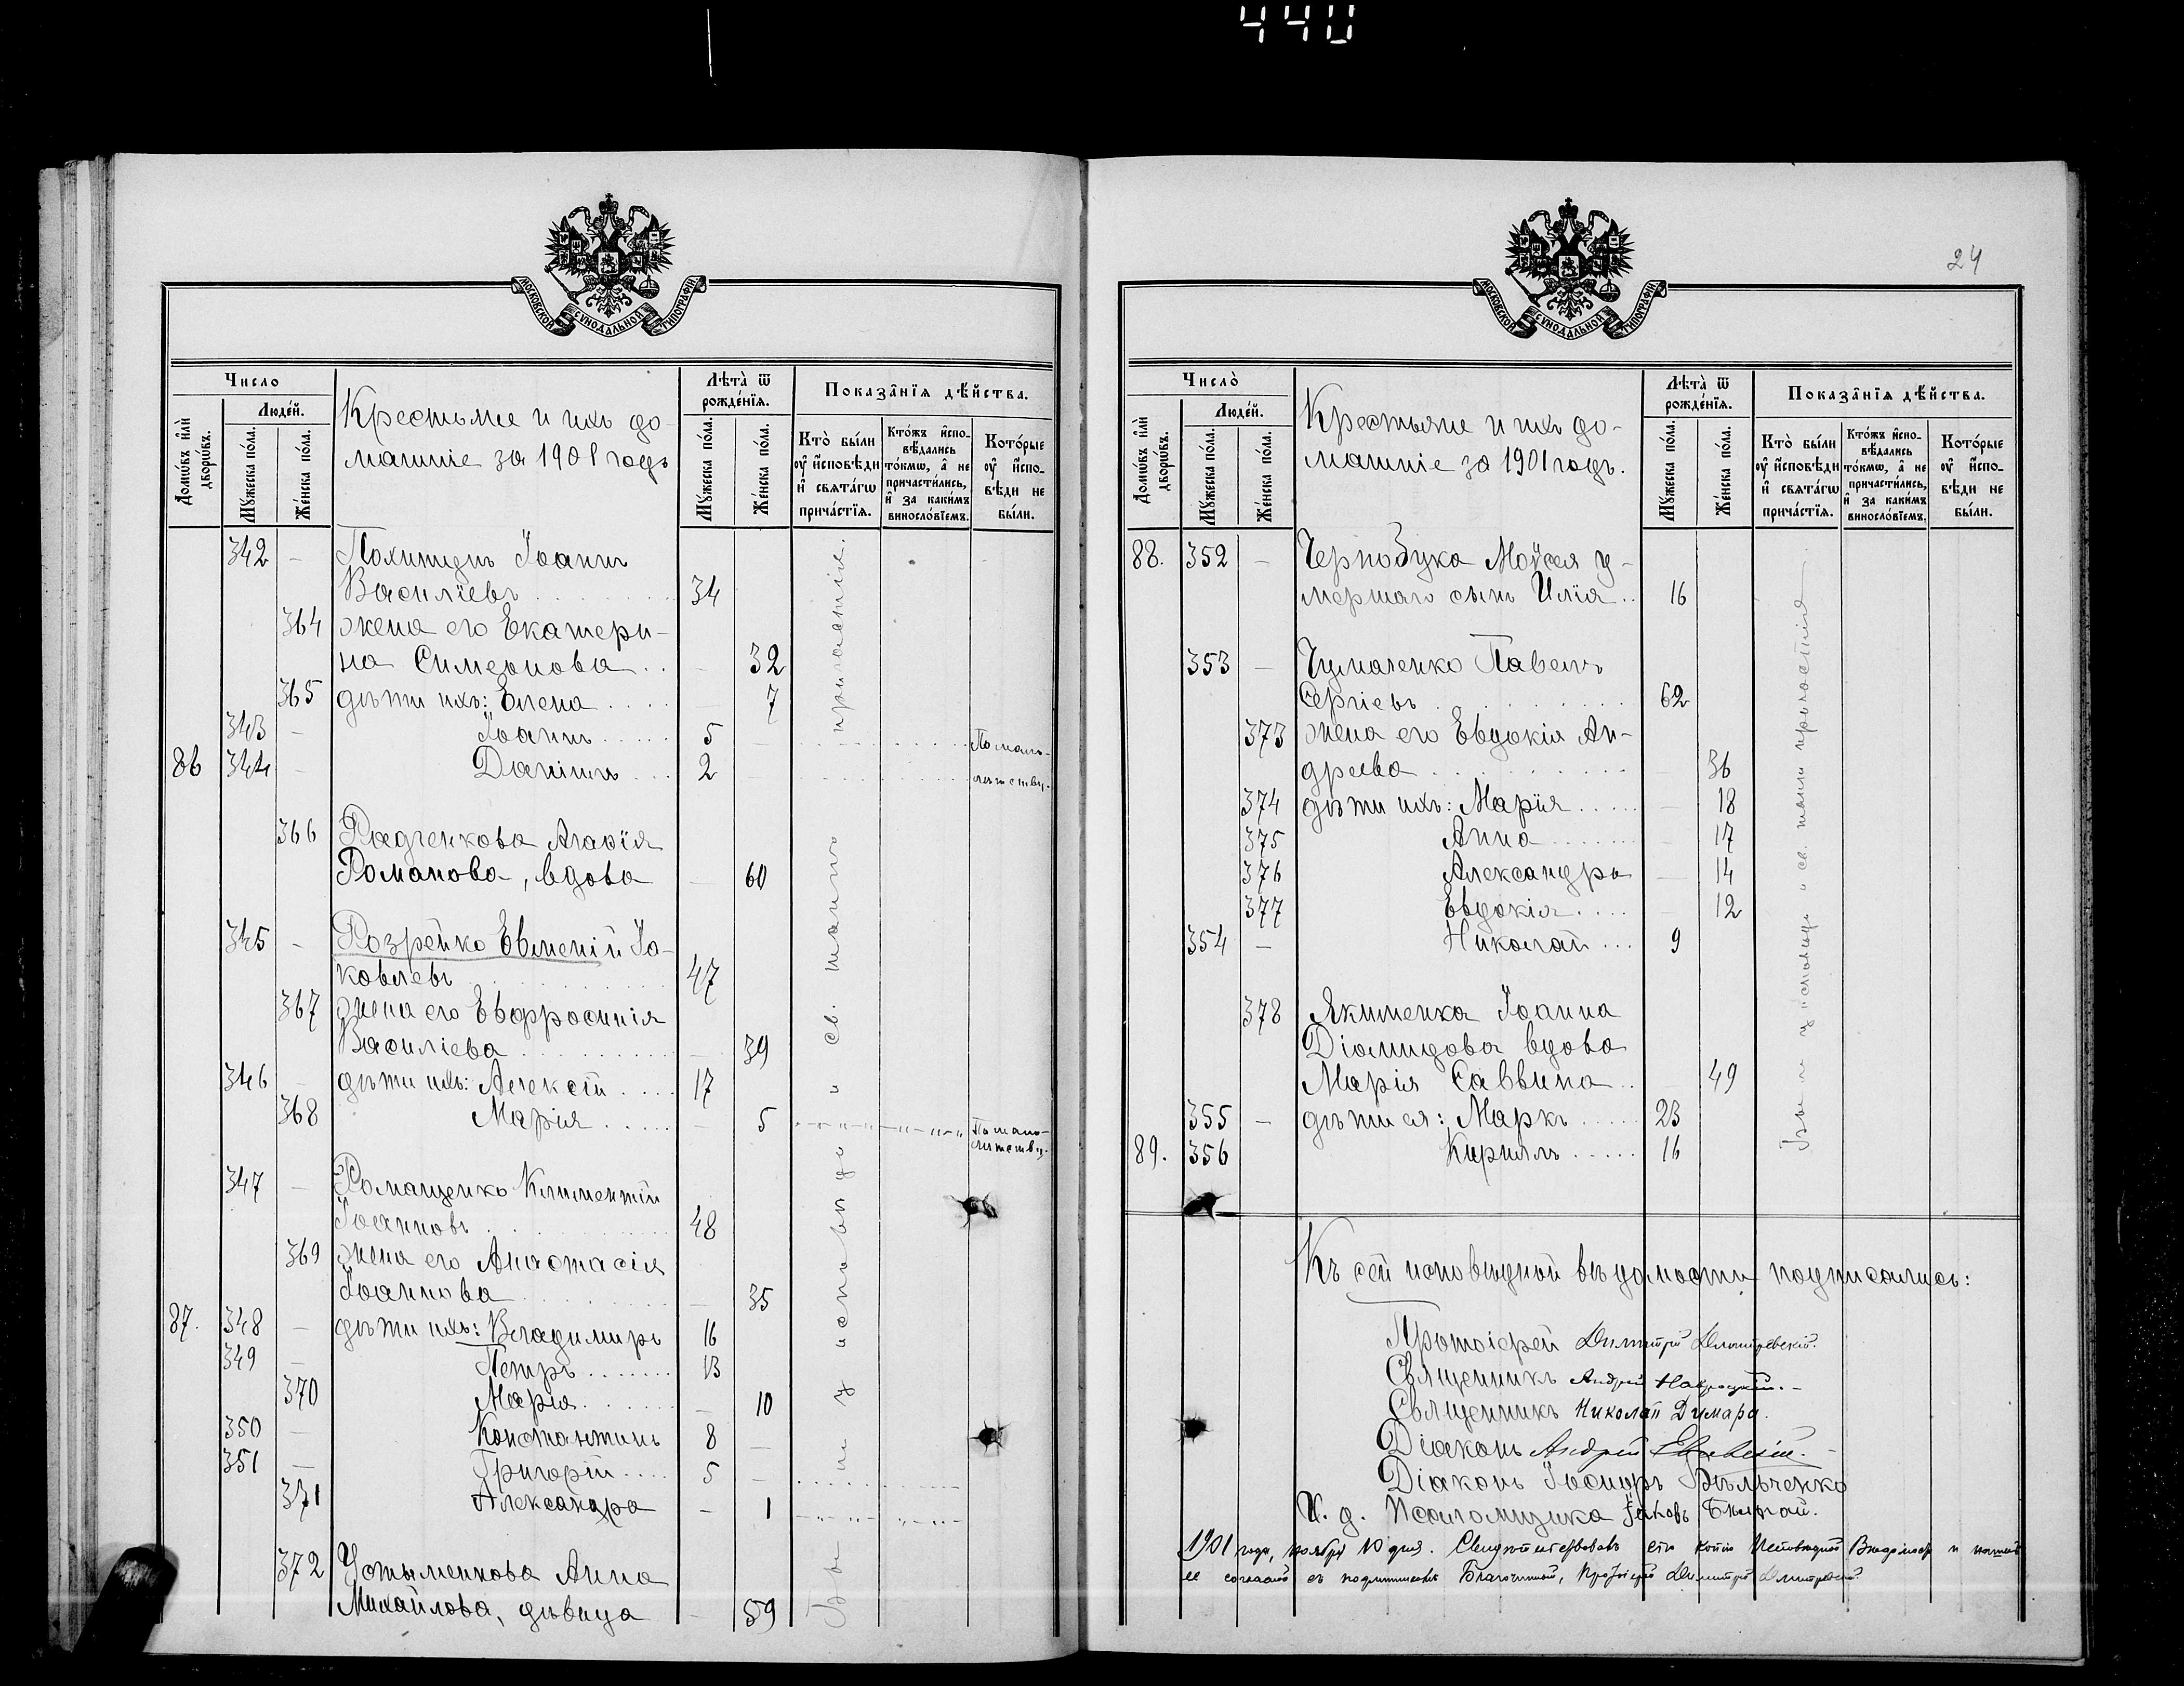 440
МОСКОВСКОЙ СѴНОДАЛЬНОЙ ТИПОГРАФІИ.
Число
Людей.
Домѡвъ или дворѡвъ.
Мꙋжеска пола.
Женска пола.
Крестьяне и ихъ до-
машніе за 1901 годъ
Лѣта ѿ рожденїѧ.
Мꙋжеска пола.
Женска пола.
Показанїѧ дѣйства.
Кто были ᲂу исповѣди и свѧтагѡ причастїѧ.
Ктожъ исповѣдались токмѡ, а не причастились, и за какимъ винословїемъ.
Которые ᲂу исповѣди не были.
342 – Іоаннъ
Василіевъ 34
364 жена его Екатери-
на Симеонова – 32
365 дѣти ихъ: Елена – 7
343 – Іоаннъ 5 – По мало-
86 344 – Даніилъ 2 – лѣтству.
366 Радченкова Агафія
Романова, вдова – 60
345 – Розрейко Евмений Іа-
ковлевъ 47
367 жена его Евфросинія
Василіева – 39
346 – дѣти ихъ: Алексій 17
368 Марія – 5 По мало-
лѣтству.
347 – Ромащенко Климентій
Іоанновъ 48
369 жена его Анастасія
Іоаннова – 35
87. 348 – дѣти ихъ: Владимиръ 16
349 – Петръ 13
370 Марія – 10
350 – Константинъ 8 –
351 – Григорій 5 –
371 Александра – 1
372 Устыменкова Анна
Михайлова, дѣвица – 59
Были у исповѣди и св. таинъ причастія.
24
МОСКОВСКОЙ СѴНОДАЛЬНОЙ ТИПОГРАФІИ.
Число
Людей.
Домѡвъ или дворѡвъ.
Мꙋжеска пола.
Женска пола.
Крестьяне и ихъ до-
машніе за 1901 годъ.
Лѣта ѿ рожденїѧ.
Мꙋжеска пола.
Женска пола.
Показанїѧ дѣйства.
Кто были ᲂу исповѣди и свѧтагѡ причастїѧ.
Ктожъ исповѣдались токмѡ, а не причастились, и за какимъ винословїемъ.
Которые ᲂу исповѣди не были.
88. 352 – Чернобука Моѵсея у-
мершаго сынъ Илія 16
353 – Чумаченко Павелъ
Сергіевъ 62
373 жена его Евдокія Ан-
дреева – 36
374 дѣти ихъ: Марія – 18
375 Анна – 17
376 Александра – 14
377 Евдокія – 12
354 – Николай 9
378 Якименка Іоанна
Діамидова вдова
Марія Саввина – 49
355 – дѣти ея: Маркъ 23
89. 356 Кириллъ 16
Были у исповѣди и св. таинъ причастія
Къ сей исповѣдной вѣдомости подписались:
Протоіерей Димитрій Дмитревскій.
Священникъ Андрей Навроцкій.
Священникъ Николай Думара.
Діаконъ Андрей
Діаконъ Іосифъ Вѣльченко
И. д. Псаломщика Іаковъ
1901 года, ноября 10 дня. Свидѣтельствовавъ сію копію Исповѣдной Вѣдомости и нашелъ
ее согласной съ подлинникомъ Благочинный, Протоіерей Димитрій Дмитревскій.